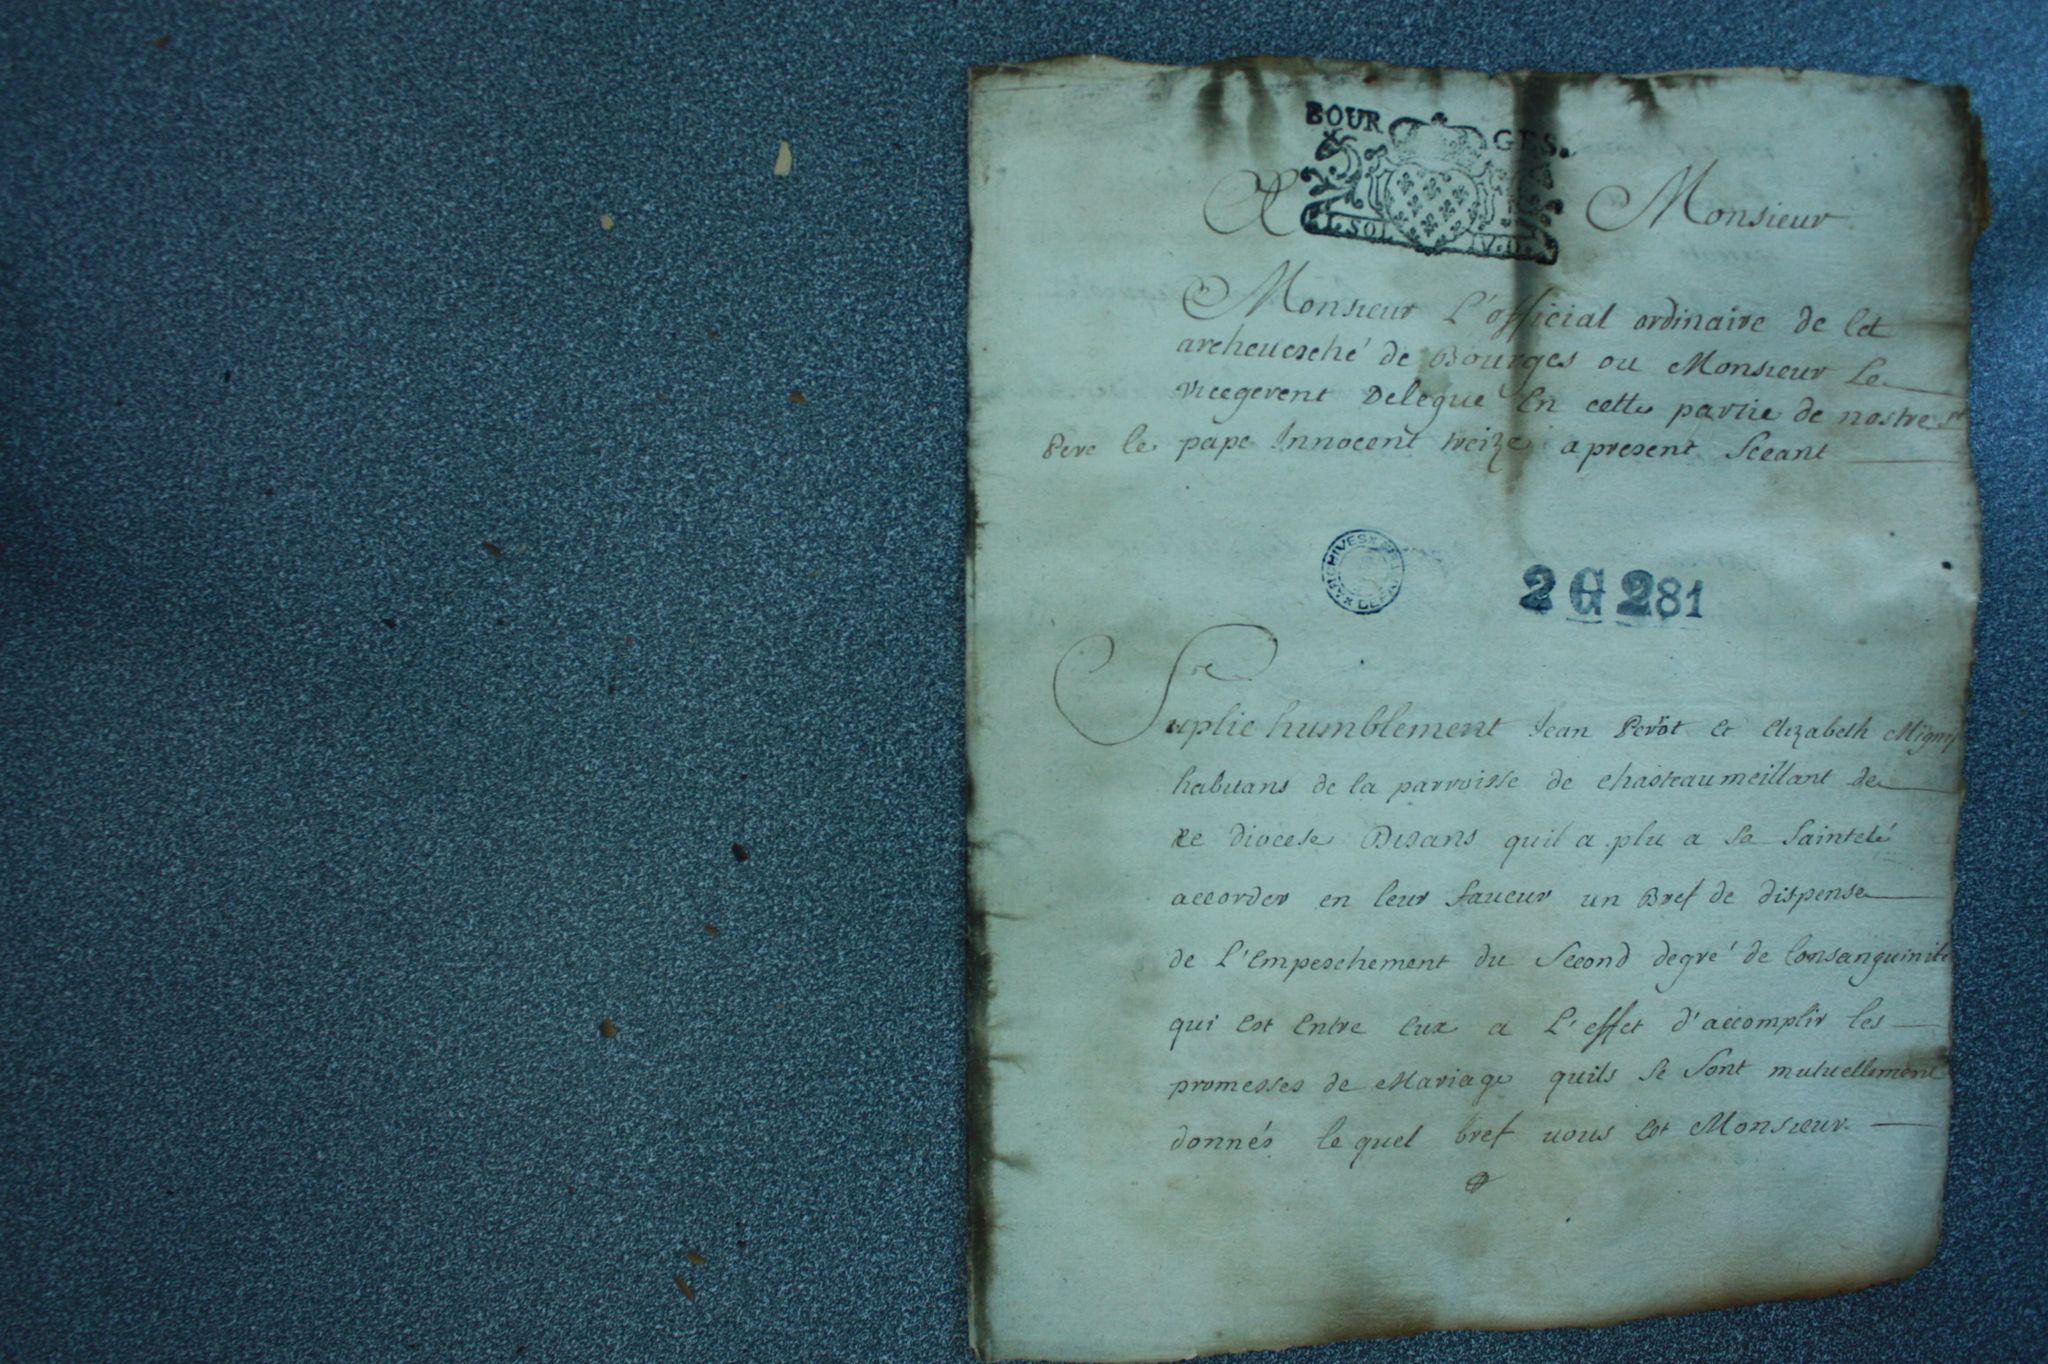 BOURGES.
1. SOL IV. D.
A Monsieur
Monsieur L'official ordinaire de cet
archeuesché de Bourges ou Monsieur Le
vicegerent Delegue En cette partie de nostre St
Pere le pape Innocent treize a present Seeant
ARCHIVES DEP
2 G 281
Suplie humblement Jean Perot et Elizabeth
habitans de la parroisse de chasteaumeillant de
ce diocese Disans quil a plu a Sa Sainteté
accorder en leur faueur un Bref de dispense
de L'Empeschement du Second degré de Consanguinité
qui Est Entre Eux a L'effet d'accomplir les
promesses de Mariage quils se Sont mutuellement
donnés le quel bref uous Est Monsieur